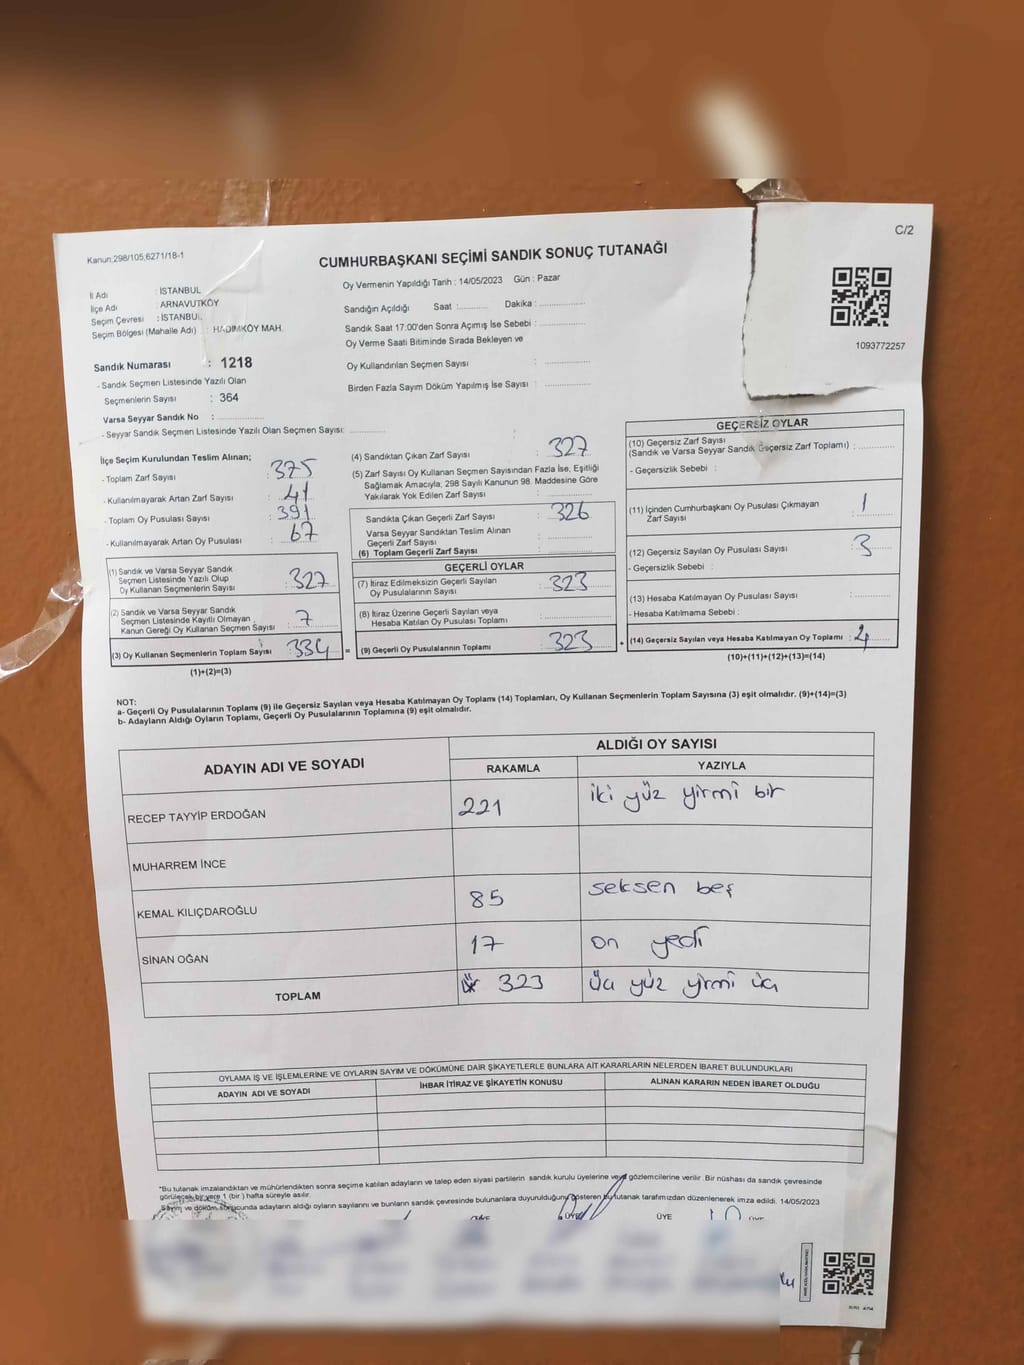 C/2
Kanun;298/105;6271/18-1
CUMHURBAŞKANI SEÇİMİ SANDIK SONUÇ TUTANAĞI
İl Adı : İSTANBUL
İlçe Adı : ARNAVUTKÖY
Seçim Çevresi : İSTANBUL
Seçim Bölgesi (Mahalle Adı) : HADIMKÖY MAH.
Sandık Numarası : 1218
- Sandık Seçmen Listesinde Yazılı Olan
Seçmenlerin Sayısı : 364
Varsa Seyyar Sandık No :
- Seyyar Sandık Seçmen Listesinde Yazılı Olan Seçmen Sayısı:
Oy Vermenin Yapıldığı Tarih : 14/05/2023 Gün : Pazar
Sandığın Açıldığı Saat : Dakika :
Sandık Saat 17:00'den Sonra Açımış İse Sebebi :
Oy Verme Saati Bitiminde Sırada Bekleyen ve
Oy Kullandırılan Seçmen Sayısı :
Birden Fazla Sayım Döküm Yapılmış İse Sayısı :
1093772257
İlçe Seçim Kurulundan Teslim Alınan;
- Toplam Zarf Sayısı : 375
- Kullanılmayarak Artan Zarf Sayısı : 41
- Toplam Oy Pusulası Sayısı : 391
- Kullanılmayarak Artan Oy Pusulası : 67
(1) Sandık ve Varsa Seyyar Sandık
Seçmen Listesinde Yazılı Olup
Oy Kullanan Seçmenlerin Sayısı : 327
(2) Sandık ve Varsa Seyyar Sandık
Seçmen Listesinde Kayıtlı Olmayan
Kanun Gereği Oy Kullanan Seçmen Sayısı : 7
(3) Oy Kullanan Seçmenlerin Toplam Sayısı : 334 =
(1)+(2)=(3)
(4) Sandıktan Çıkan Zarf Sayısı : 327
(5) Zarf Sayısı Oy Kullanan Seçmen Sayısından Fazla İse, Eşitliği
Sağlamak Amacıyla; 298 Sayılı Kanunun 98. Maddesine Göre
Yakılarak Yok Edilen Zarf Sayısı :
Sandıkta Çıkan Geçerli Zarf Sayısı : 326
Varsa Seyyar Sandıktan Teslim Alınan
Geçerli Zarf Sayısı :
(6) Toplam Geçerli Zarf Sayısı :
GEÇERLİ OYLAR
(7) İtiraz Edilmeksizin Geçerli Sayılan
Oy Pusulalarının Sayısı : 323
(8) İtiraz Üzerine Geçerli Sayılan veya
Hesaba Katılan Oy Pusulası Toplamı :
(9) Geçerli Oy Pusulalarının Toplamı : 323 +
GEÇERSİZ OYLAR
(10) Geçersiz Zarf Sayısı
(Sandık ve Varsa Seyyar Sandık Geçersiz Zarf Toplamı) :
- Geçersizlik Sebebi :
(11) İçinden Cumhurbaşkanı Oy Pusulası Çıkmayan
Zarf Sayısı : 1
(12) Geçersiz Sayılan Oy Pusulası Sayısı : 3
- Geçersizlik Sebebi :
(13) Hesaba Katılmayan Oy Pusulası Sayısı :
- Hesaba Katılmama Sebebi :
(14) Geçersiz Sayılan veya Hesaba Katılmayan Oy Toplamı : 4
(10)+(11)+(12)+(13)=(14)
NOT:
a- Geçerli Oy Pusulalarının Toplamı (9) ile Geçersiz Sayılan veya Hesaba Katılmayan Oy Toplamı (14) Toplamları, Oy Kullanan Seçmenlerin Toplam Sayısına (3) eşit olmalıdır. (9)+(14)=(3)
b- Adayların Aldığı Oyların Toplamı, Geçerli Oy Pusulalarının Toplamına (9) eşit olmalıdır.
ADAYIN ADI VE SOYADI ALDIĞI OY SAYISI
RAKAMLA YAZIYLA
RECEP TAYYİP ERDOĞAN 221 iki yüz yirmi bir
MUHARREM İNCE
KEMAL KILIÇDAROĞLU 85 seksen beş
SİNAN OĞAN 17 on yedi
TOPLAM 323 üç yüz yirmi üç
OYLAMA İŞ VE İŞLEMLERİNE VE OYLARIN SAYIM VE DÖKÜMÜNE DAİR ŞİKAYETLERLE BUNLARA AİT KARARLARIN NELERDEN İBARET BULUNDUKLARI
ADAYIN ADI VE SOYADI İHBAR İTİRAZ VE ŞİKAYETİN KONUSU ALINAN KARARIN NEDEN İBARET OLDUĞU
*Bu tutanak imzalandıktan ve mühürlendikten sonra seçime katılan adayların ve talep eden siyasi partilerin sandık kurulu üyelerine veya gözlemcilerine verilir. Bir nüshası da sandık çevresinde
görülecek bir yere 1 (bir) hafta süreyle asılır.
Sayım ve döküm sonucunda adayların aldığı oyların sayılarını ve bunların sandık çevresinde bulunanlara duyurulduğunu gösteren bu tutanak tarafımızdan düzenlenerek imza edildi. 14/05/2023
ÜYE ÜYE ÜYE ÜYE